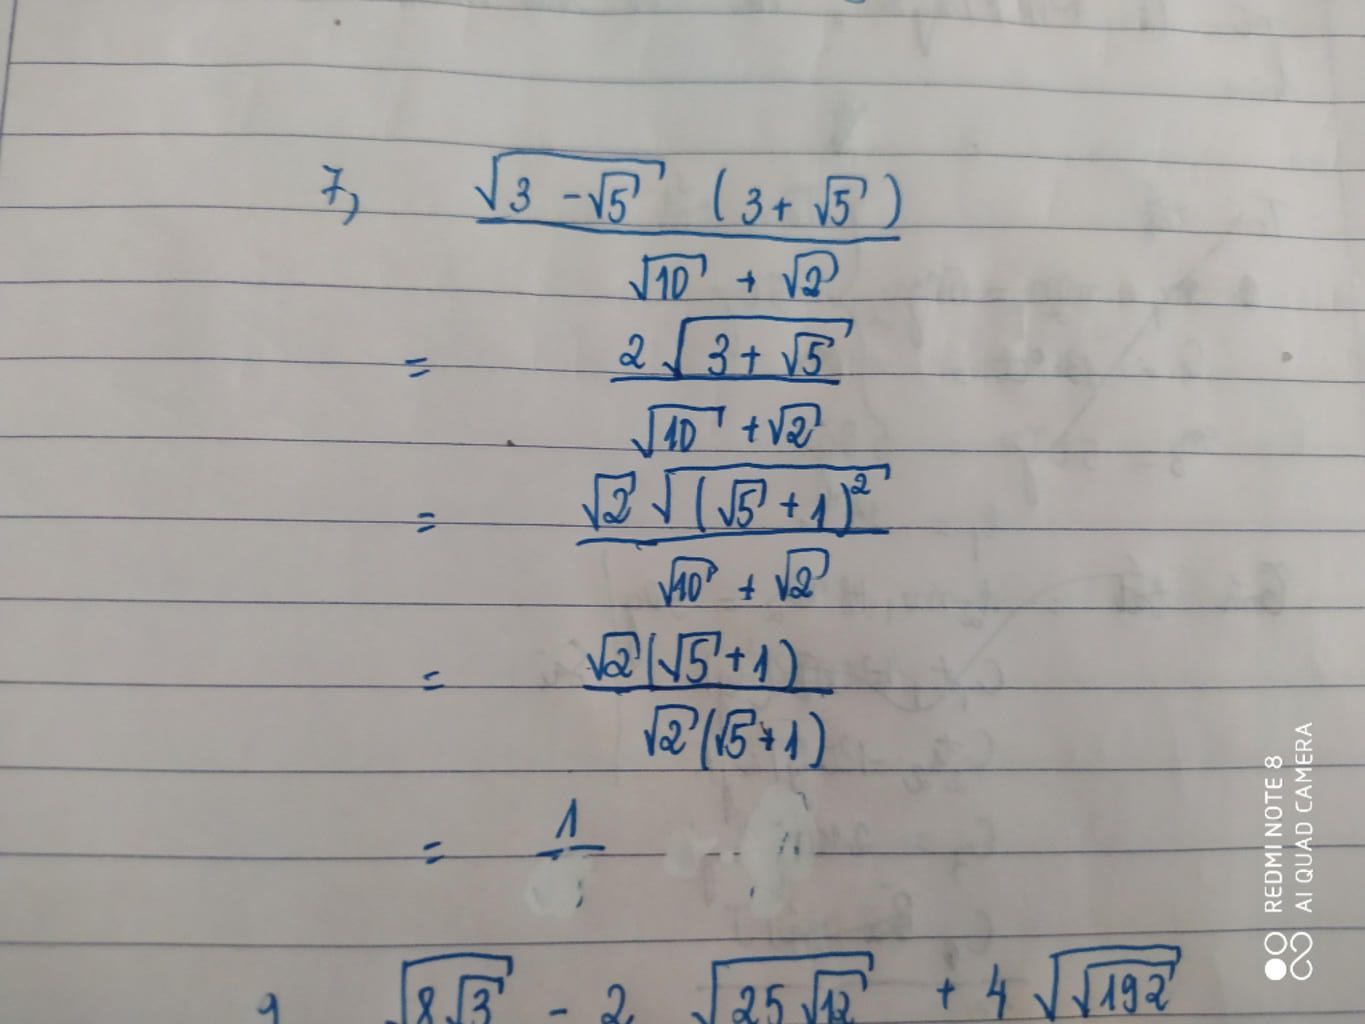 7, √(3 - √5) (3 + √5)
√10 + √2
= 2√(3 + √5)
√10 + √2
= √2 √((√5 + 1)²)
√10 + √2
= √2(√5 + 1)
√2(√5 + 1)
= 1
√(8√3) - 2 √(25√12) + 4 √(√192)
REDMI NOTE 8
AI QUAD CAMERA